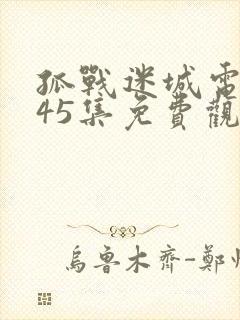 孤戰迷城電
45集免費觀
烏魯木齊-鄭州